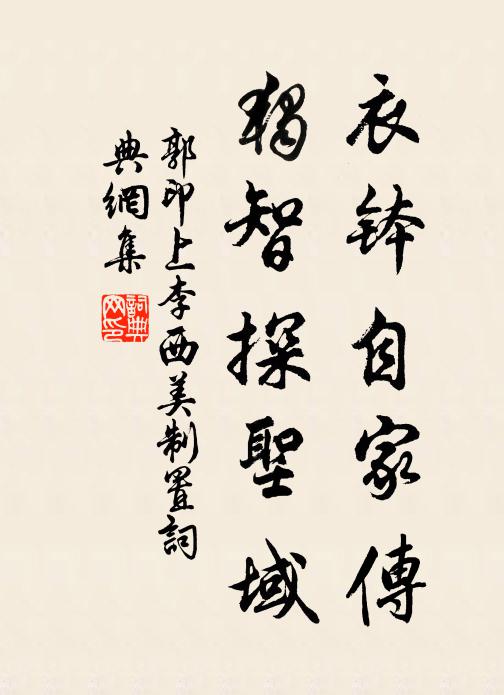 衣鉢自家傳
獨智探聖域
郭印上李西美制置詞
典網集
詞典網印